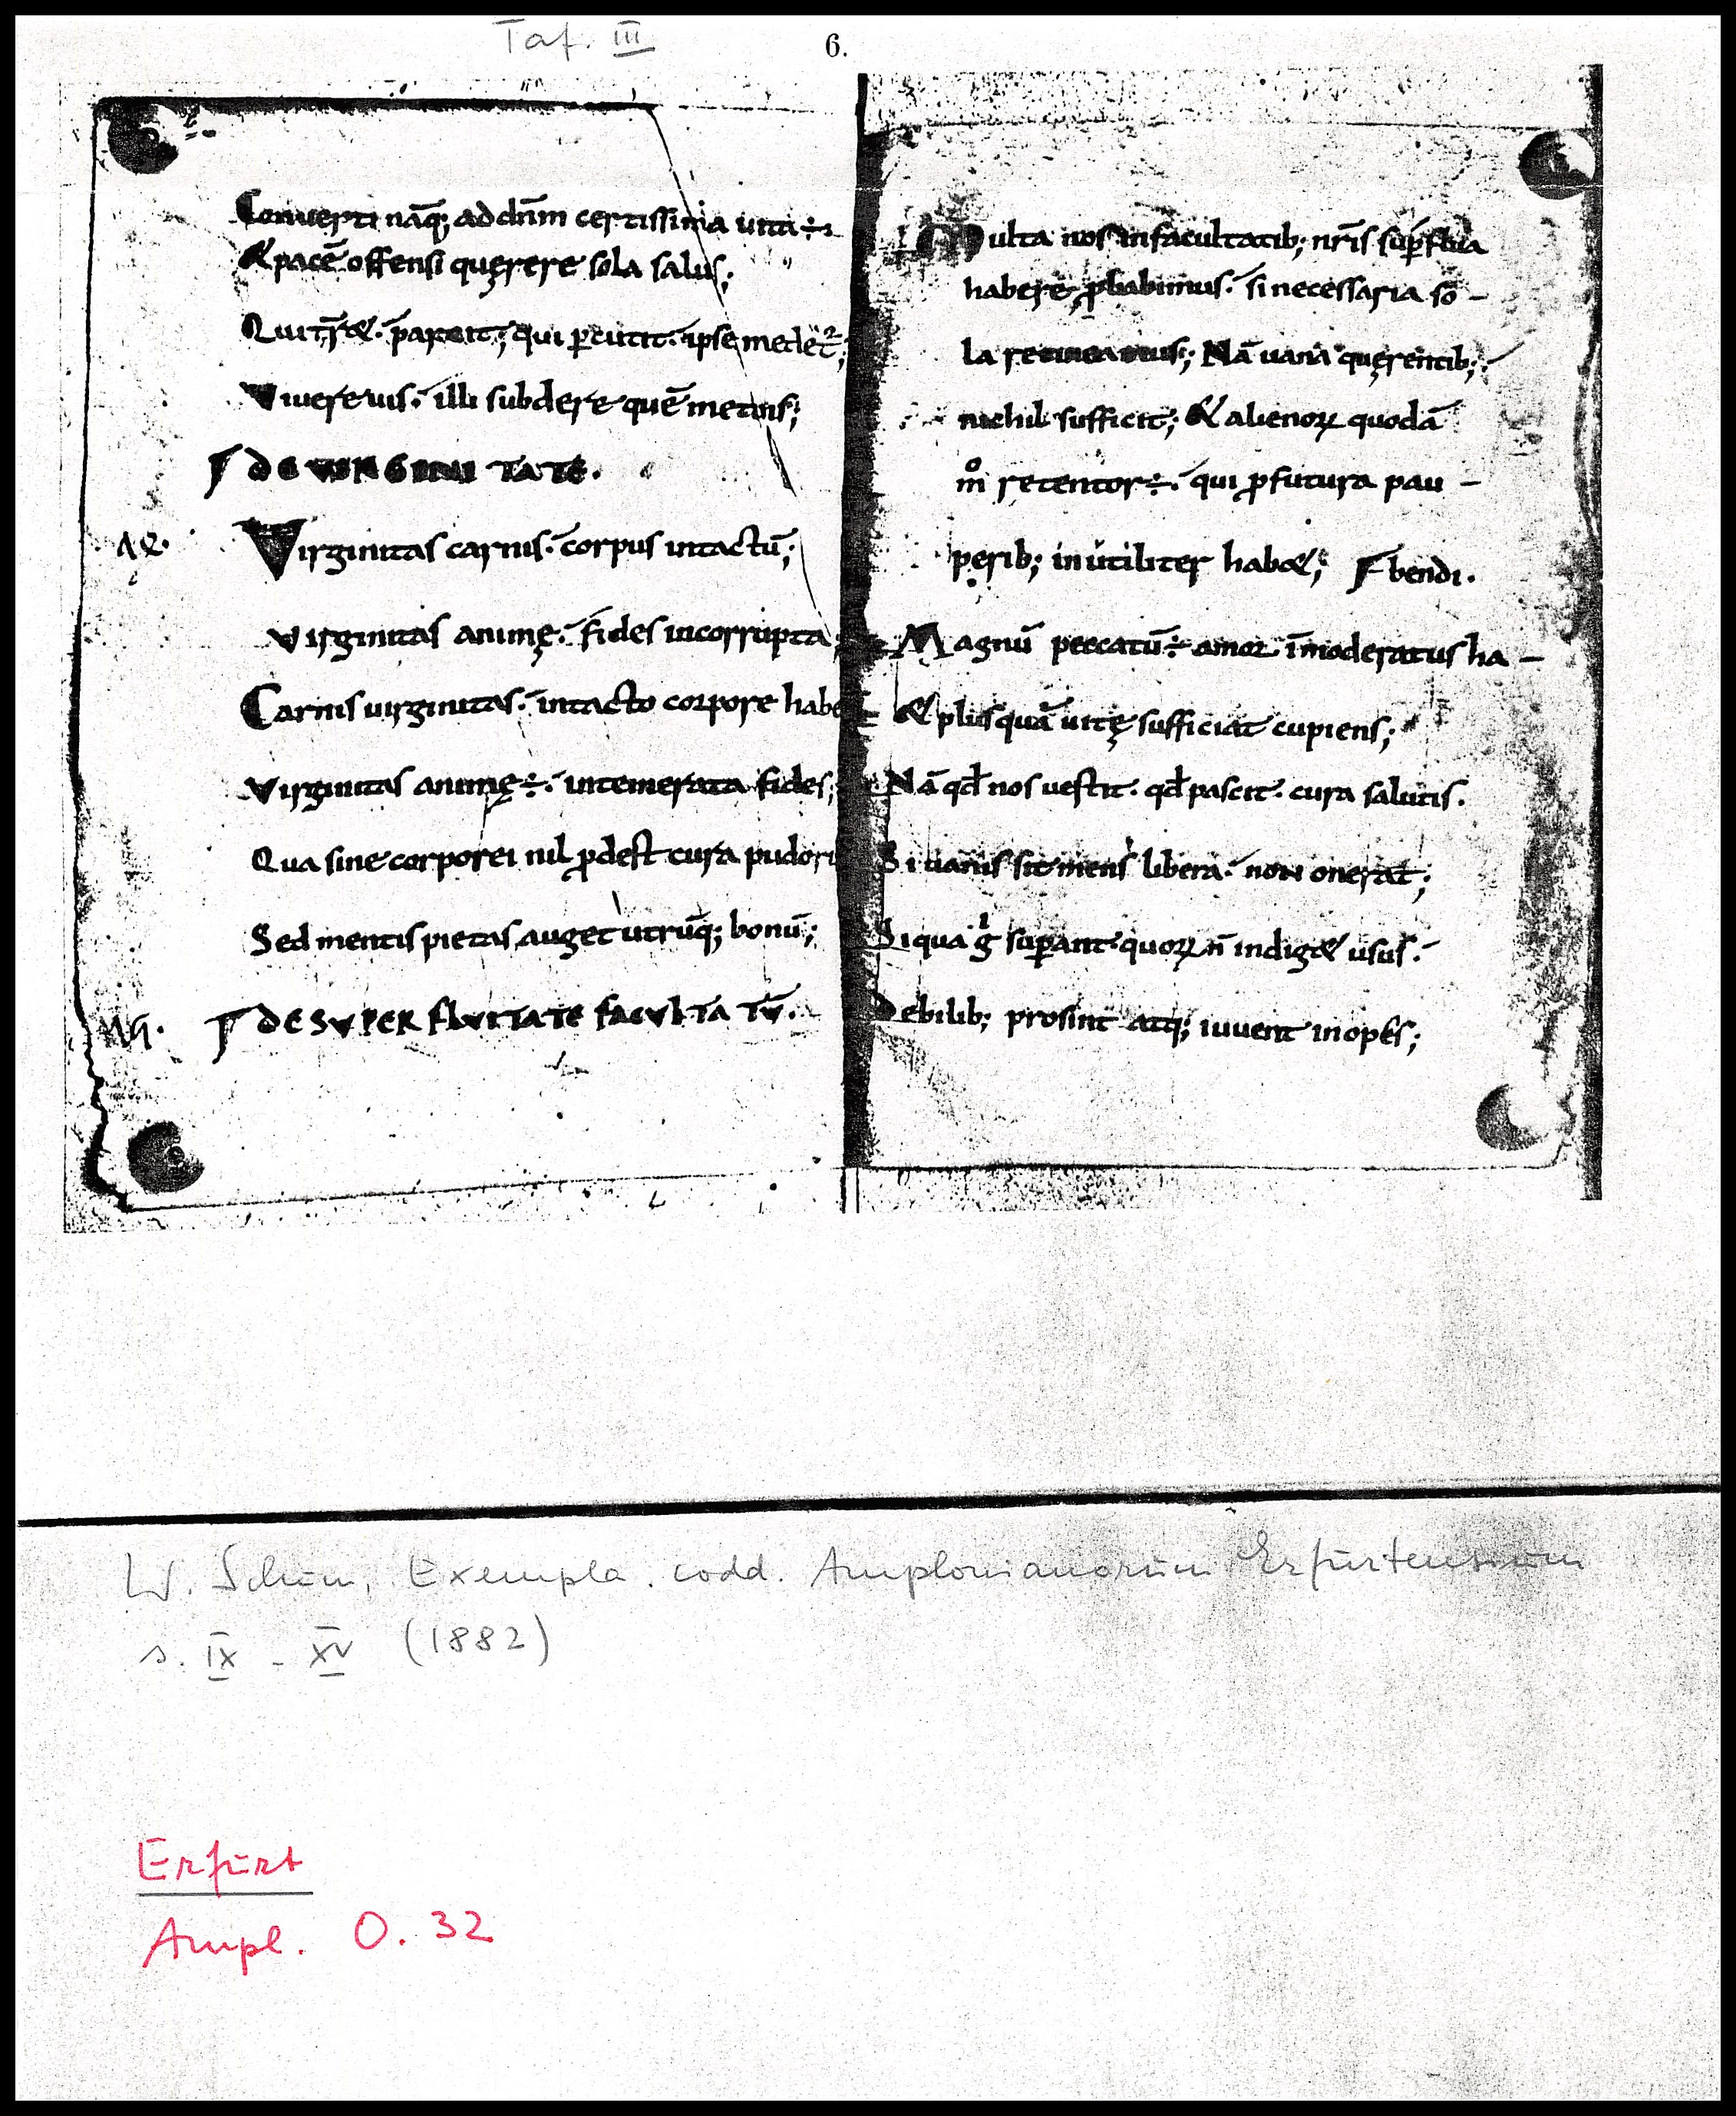 Taf. III
6.
Conuerti nāq; ad dn̄m certissima uita ÷
& pacē offensi quęrere sola salus;
Qui tr̄&. parcit; qui ꝑcutit. ipse medet᷑;
Viuere uis. illi subdere quē metuis;
DE VIRGINITATE.
Virginitas carnis. corpus intactū;
Virginitas animę. fides incorrupta
Carnis uirginitas. intacto corpore habe
Virginitas animę ÷. intemerata fides;
Qua sine corporei nil ꝓdest cura pudori
Sed mentis pietas auget utrūq; bonū;
DE SVPERFLVITATE FACVLTATŪ.
Multa nos in facultatib; nr̄is suꝑflua
habere ꝓbabimus. si necessaria so-
la retineamus; Nā uana quęrentib;
nichil sufficit; & alienoꝝ quodā
m̊ retentor ÷. qui ꝓfutura pau-
perib; inutiliter hab&; bendi.
Magnū peccatū ÷ amor īmoderatus ha-
& plus quā uitę sufficiat cupiens;
Nā qd̄ nos uestit. qd̄ pascit. cura salutis.
Si uanis sit mens libera. non onerat;
Siqua gͥ suꝑant quoꝝ n̄ indig& usus.
Debilib; prosint atq; iuuent inopes;
W. Schum, Exempla codd. Amplonianorum Erfurtensium
s. IX - XV (1882)
Erfurt
Ampl. O. 32